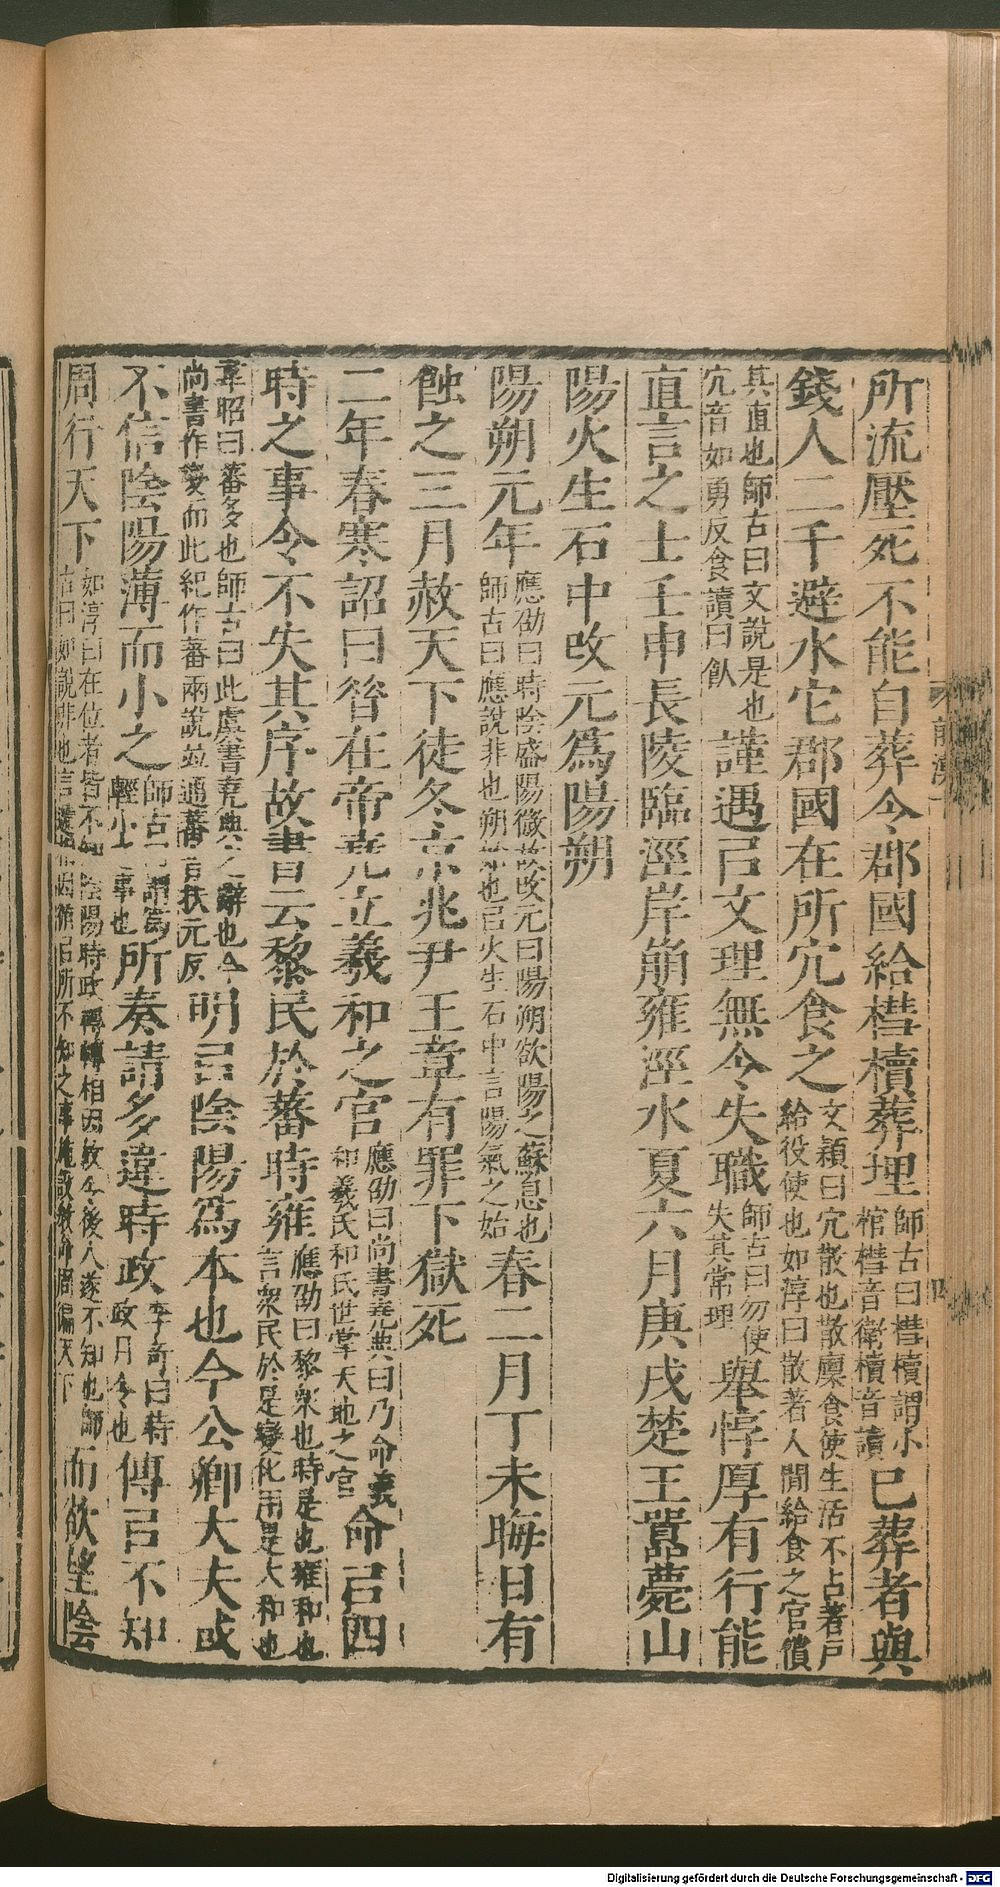 所流壓死不能自葬令郡國給槥櫝葬埋師古曰槥櫝謂小棺槥音衛櫝音讀已葬者與
錢人二千避水它郡國在所冗食之文穎曰冗散也散廩食使生活不占著戸給役使也如淳曰散著人間給食之官償
其直也師古曰文說是也冗音如勇反食讀曰飤謹遇㠯文理無令失職師古曰勿使失其常理舉惇厚有行能
直言之士壬申長陵臨涇岸崩雍涇水夏六月庚戌楚王嚻薨山
陽火生石中改元爲陽朔
陽朔元年應劭曰時陰盛陽微故改元曰陽朔欲陽之蘇息也師古曰應說非也朔始也㠯火生石中言陽氣之始春二月丁未晦日有
蝕之三月赦天下徒冬京兆尹王章有罪下獄死
二年春寒詔曰昝在帝堯立羲和之官應劭曰尚書堯典曰乃命羲和羲氏和氏世掌天地之官命㠯四
時之事令不失其序故書云黎民於蕃時雍應劭曰黎衆也時是也雍和也言衆民於是變化用是大和也
韋昭曰蕃多也師古曰此虞書堯典之辭也今尚書作變而此紀作蕃兩說並通蕃音扶元反明㠯陰陽爲本也今公卿大夫或
不信陰陽薄而小之師古曰謂爲輕小之事也所奏請多違時政李奇曰時政月令也傳㠯不知
周行天下如淳曰在位者皆不知陰陽時政轉轉相因故令後人遂不知也師古曰如說非也言遞相因循㠯所不知之事施設教命周徧天下而欲望陰
前漢